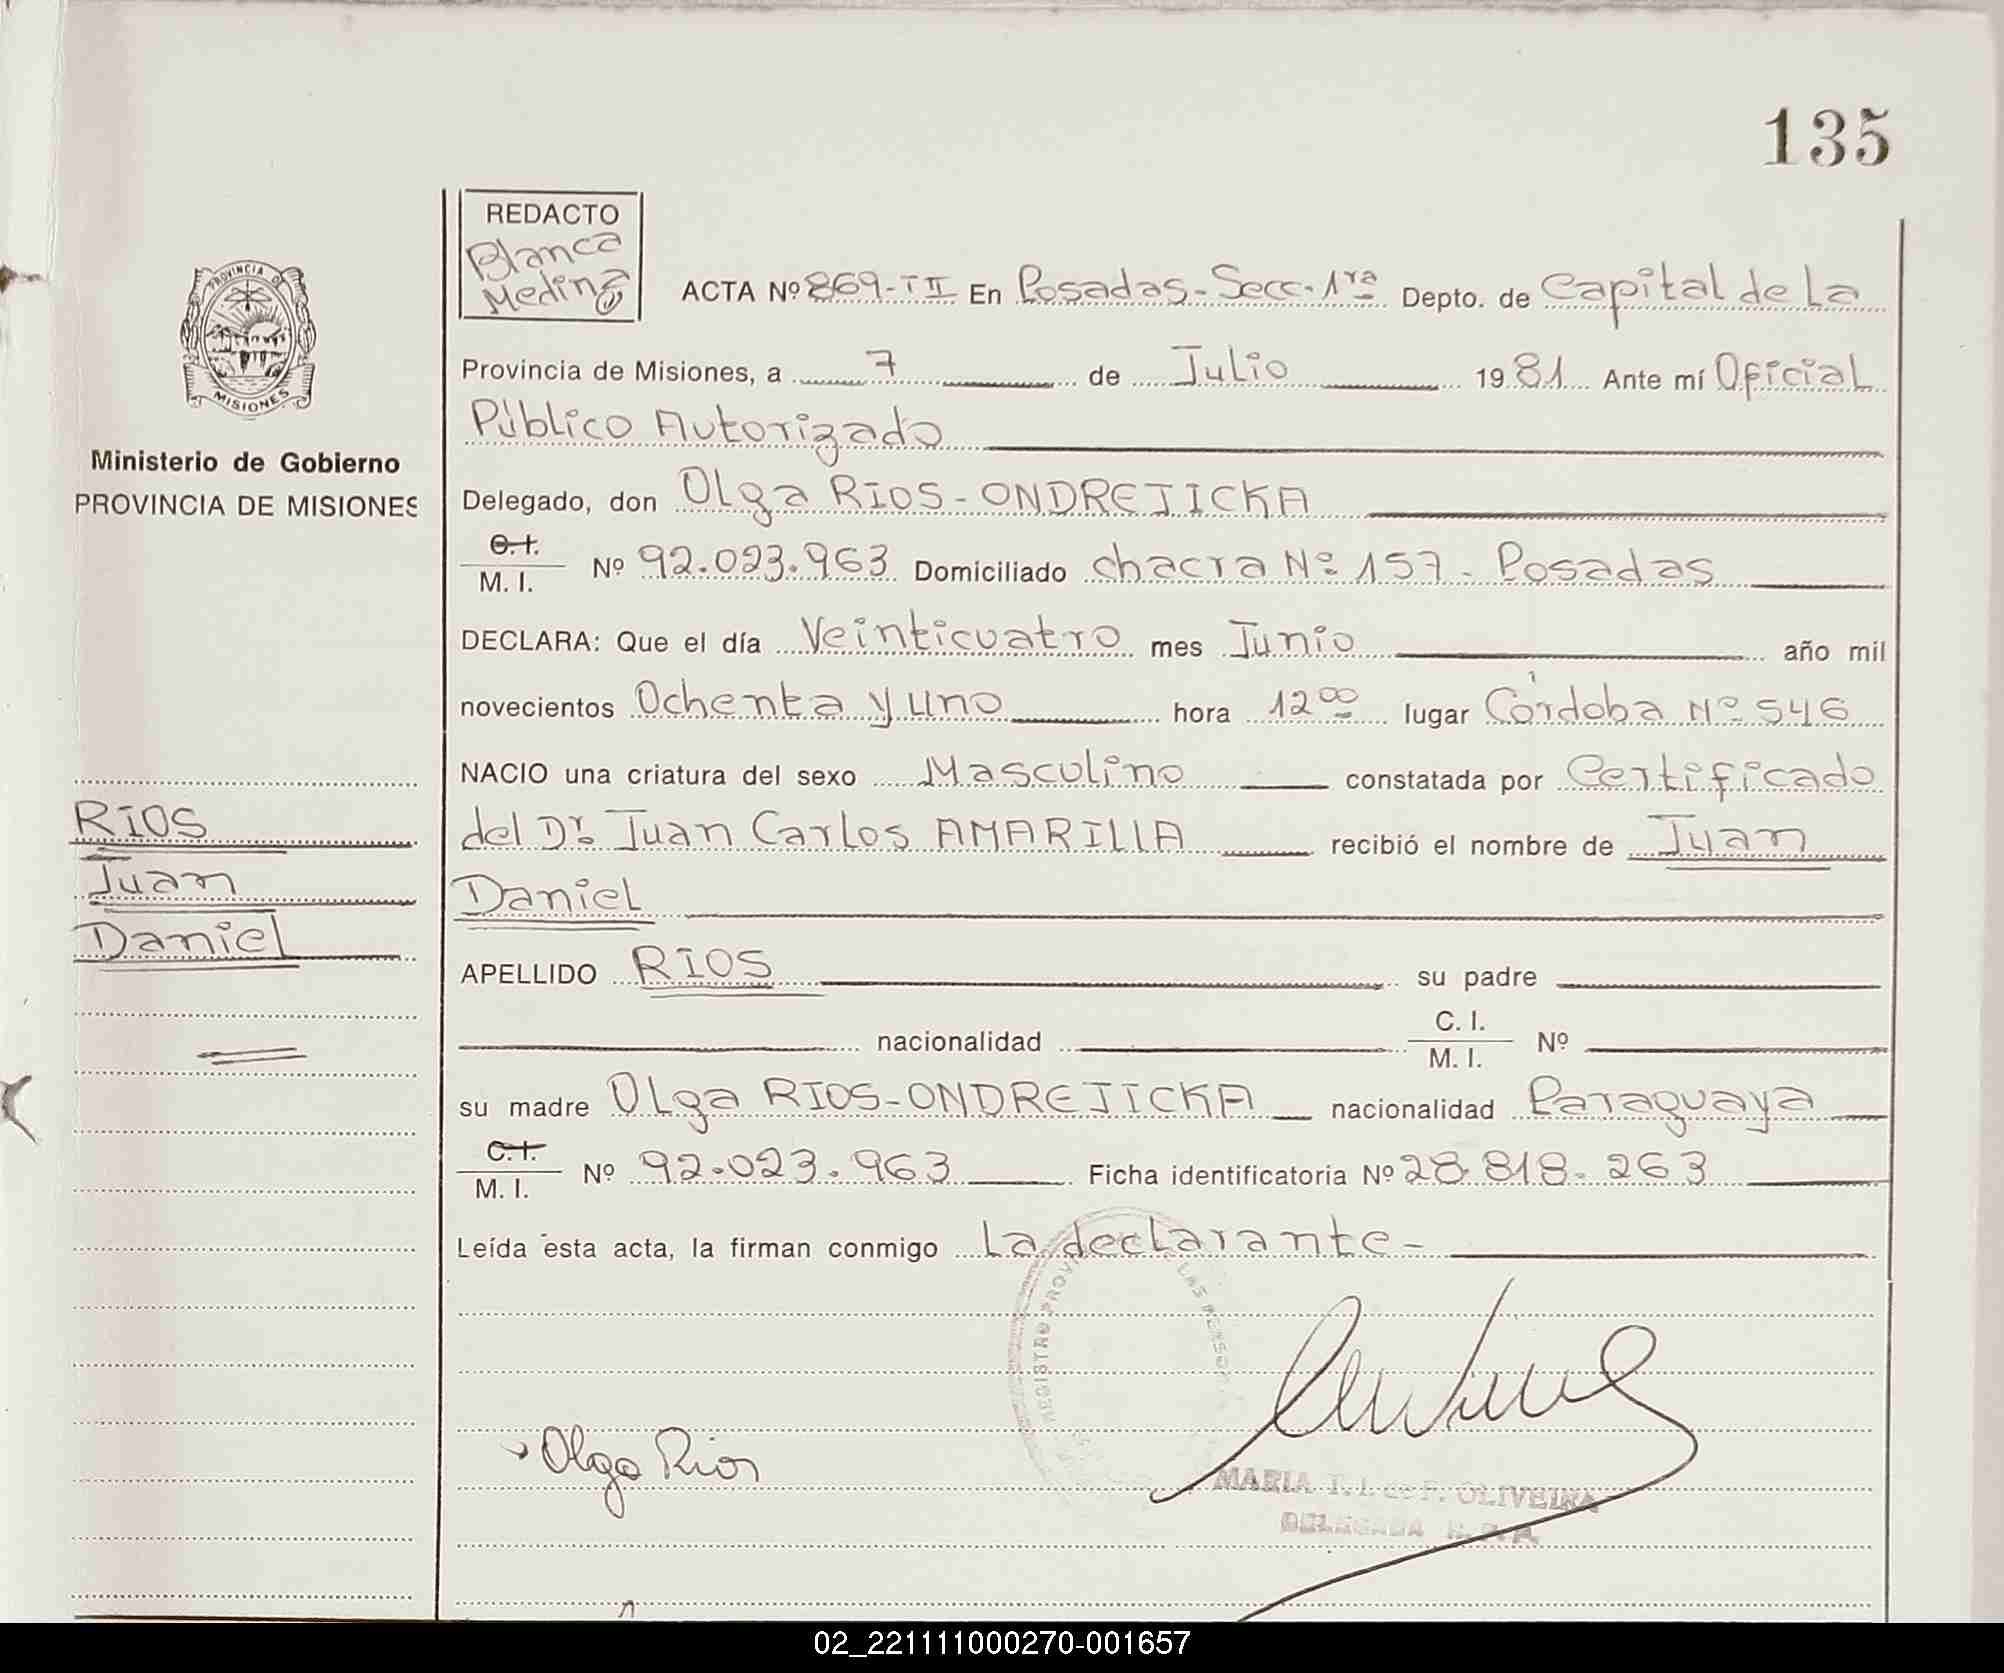 135
REDACTO
Blanca
Medina
ACTA Nº 869-TII En Posadas-Secc.1ra Depto. de Capital de La
Provincia de Misiones, a 7 de Julio 1981 Ante mí Oficial
Público Autorizado
Delegado, don Olga RIOS-ONDREJICKA
C.I.
M. I. Nº 92.023.963 Domiciliado chacra Nº 157 - Posadas
DECLARA: Que el día Veinticuatro mes Junio año mil
novecientos Ochenta y uno hora 12 00 lugar Córdoba Nº 546
NACIO una criatura del sexo Masculino constatada por Certificado
del Dr. Juan Carlos AMARILLA recibió el nombre de Juan
Daniel
APELLIDO RIOS su padre
nacionalidad C. I.
M. I. Nº
su madre Olga RIOS-ONDREJICKA nacionalidad Paraguaya
C.I.
M. I. Nº 92.023.963 Ficha identificatoria Nº 28.818.263
Leída esta acta, la firman conmigo La declarante-
Olga Rios
MARIA T. I. de F. OLIVEIRA
DELEGADA
REGISTRO PROVI LAS PERSO
PROVINCIA D
MISIONES
Ministerio de Gobierno
PROVINCIA DE MISIONES
RIOS
Juan
Daniel
02_221111000270-001657